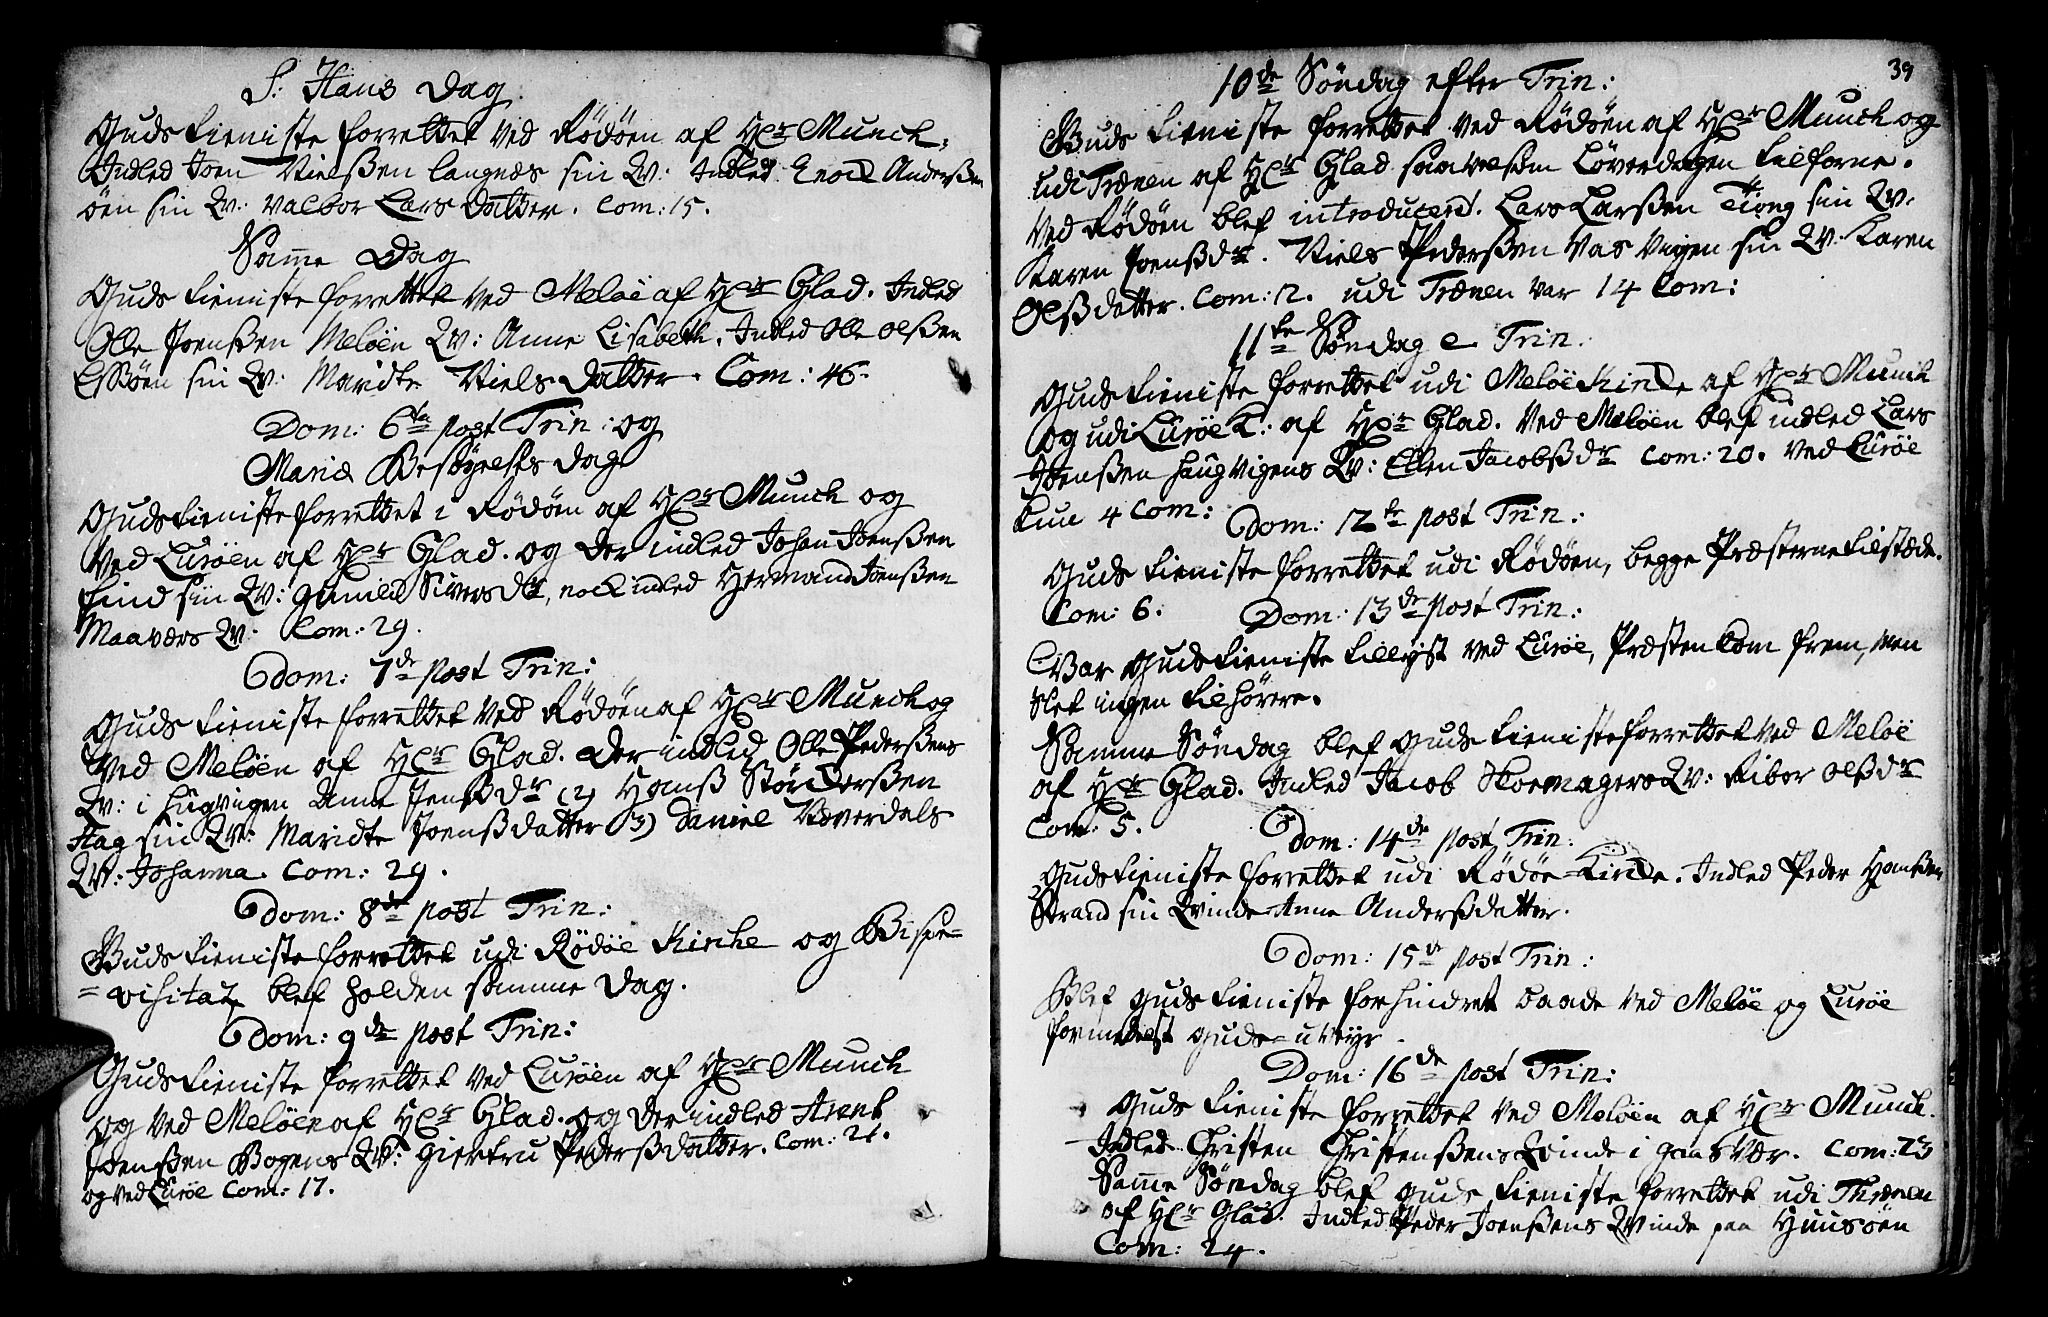 S: Hans Dag.
Guds tieniste forrettet ved Rödöen af Hr Munch,
Indled Joen Nielßen langnæs sin Qv: Indled Enoch Anderßen
öen sin Qv: Valbor Lars datter. Com: 15.
Same Dag
Guds tieniste forrettet ved Meløe af Hr Glad. Indled
Olle Joenßen Meløen Qv: Anne Lisabeth. Indled Olle Olßen
Esßöen sin Qv: Maridte Niels datter. Com: 46.
Dom: 6te post Trin: og
Mariæ Besögelses dag
Guds tieniste forrettet i Rödöen af Hr Munch og
ved Luröen af Hr Glad. og der indled Johan Joenßen
sin Qv: Gunild Sivers dr, nock indled Hermand Joenßen
Maaværs Qv: Com: 29.
Dom: 7de post Trin:
Guds tieniste forrettet ved Rödöen af Hr Munch og
ved Meløen af Hr Glad. der indled Olle Pederßens
Qv: i hugvigen Anne Jensßdr (2) Hanß Störckerßen
Hag sin Qv: Maridte Joenßdatter 3) Daniel Væverdals
Qv: Johanna. Com: 29.
Dom: 8de post Trin:
Guds tieniste forrettet udi Rödöe Kirche og Bispe=
=visitatz blef holden samme Dag.
Dom: 9de post Trin:
Guds tieniste forrettet ved Luröen af Hr Munch
og ved Meløen af Hr Glad. og der indled Arent
Joenßen Bogens Qv: Giertru Pederßdatter. Com: 21.
og ved Luröe Com: 17.
39
10de Söndag efter Trin:
Guds tieniste forrettet ved Rödöen af Hr Munch og
udi Trænen af Hr Glad saavelsom Löverdagen tilforne.
Ved Rödöen blef introducert. Lars Larßen Tiong sin Qv:
Karen Joensßdr. Niels Pederßen Vas vigen sin Qv: Karen
Olßdatter. Com: 12. udi Trænen var 14 Com:
11te Söndag e Trin.
Guds tieniste forrettet udi Meløe Kirche af Hr Munch
og udi Luröe K: af Hr Glad. Ved Meløen blef indled Lars
Joenßen haugvigens Qv: Ellen Jacobßdr Com: 20. ved Luröe
kun 4 Com:
Dom: 12te post Trin:
Guds tieniste forrettet udi Rödöen, begge Præsterne tilstæde.
Com: 6.
Dom: 13de post Trin:
Var Guds tieniste tillyst ved Luröe, Præsten kom frem, men
slet ingen tilhörere.
Samme Söndag blef Guds tieniste forrettet ved Meløe
af Hr Glad. Indled Jacob Skoemagers Qv: Ribor Olßdr
Com: 5.
Dom: 14de post Trin:
Guds tieniste forrettet udi Rödöe Kirche. Indled Peder Hanßen
Strand sin Qvinde Anne Anderßdatter.
Dom: 15de post Trin:
Blef Guds tieniste forhindret baade ved Meløe og Luröe
formedelst Guds= uveyr.
Dom: 16de post Trin:
Guds tieniste forrettet ved Meløen af Hr Munch.
Indled Christen Christenßens Qvinde i gaasvær. Com: 23
Same Söndag blef Guds tieniste forrettet udi Thrænen
af Hr Glad. Indled Peder Joenßens Qvinde paa Huusöen
Com: 24.